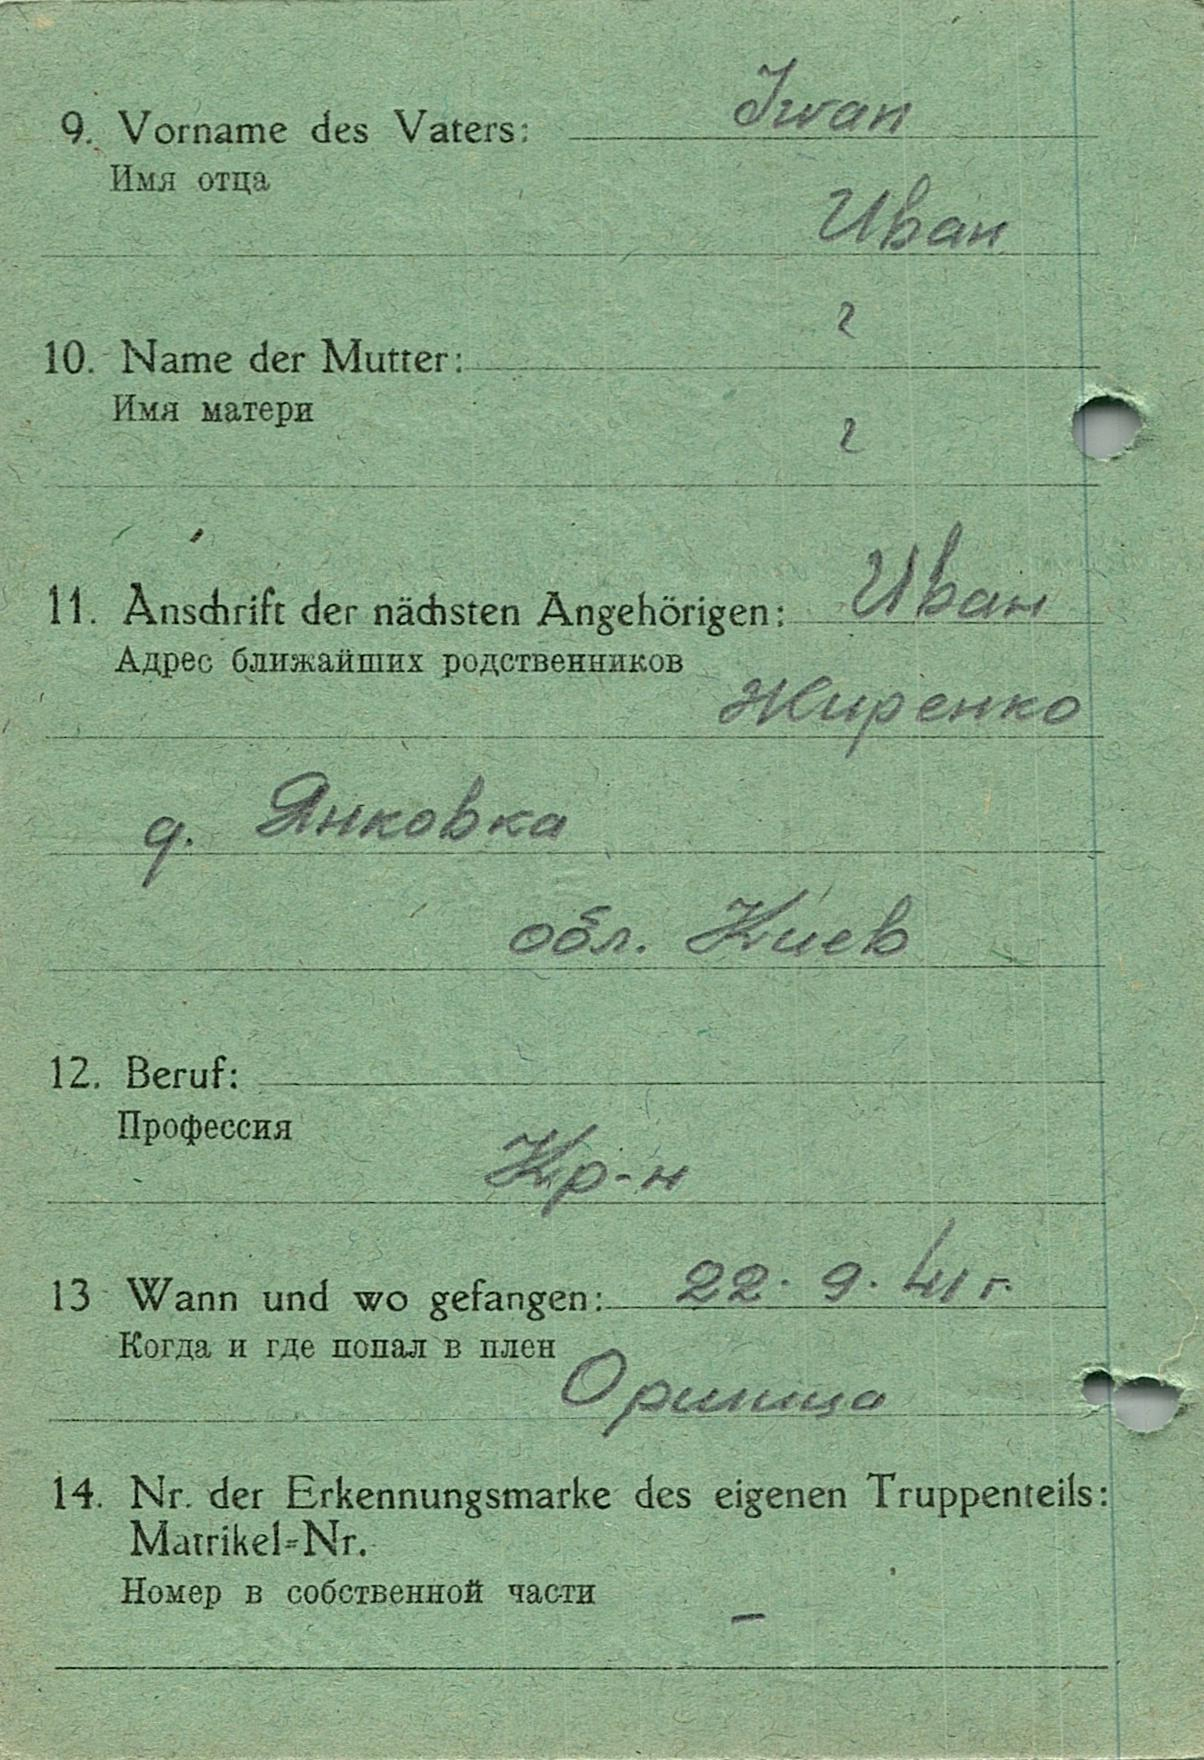 9. Vorname des Vaters: Iwan
Имя отца
Иван
?
10. Name der Mutter:
Имя матери
?
11. Anschrift der nächsten Angehörigen: Иван
Адрес ближайших родственников
Жиренко
д. Янковка
обл. Киев
12. Beruf:
Профессия
Кр-н
13 Wann und wo gefangen: 22. 9. 41 г.
Когда и где попал в плен
14. Nr. der Erkennungsmarke des eigenen Truppenteils:
Matrikel=Nr.
Номер в собственной части
–